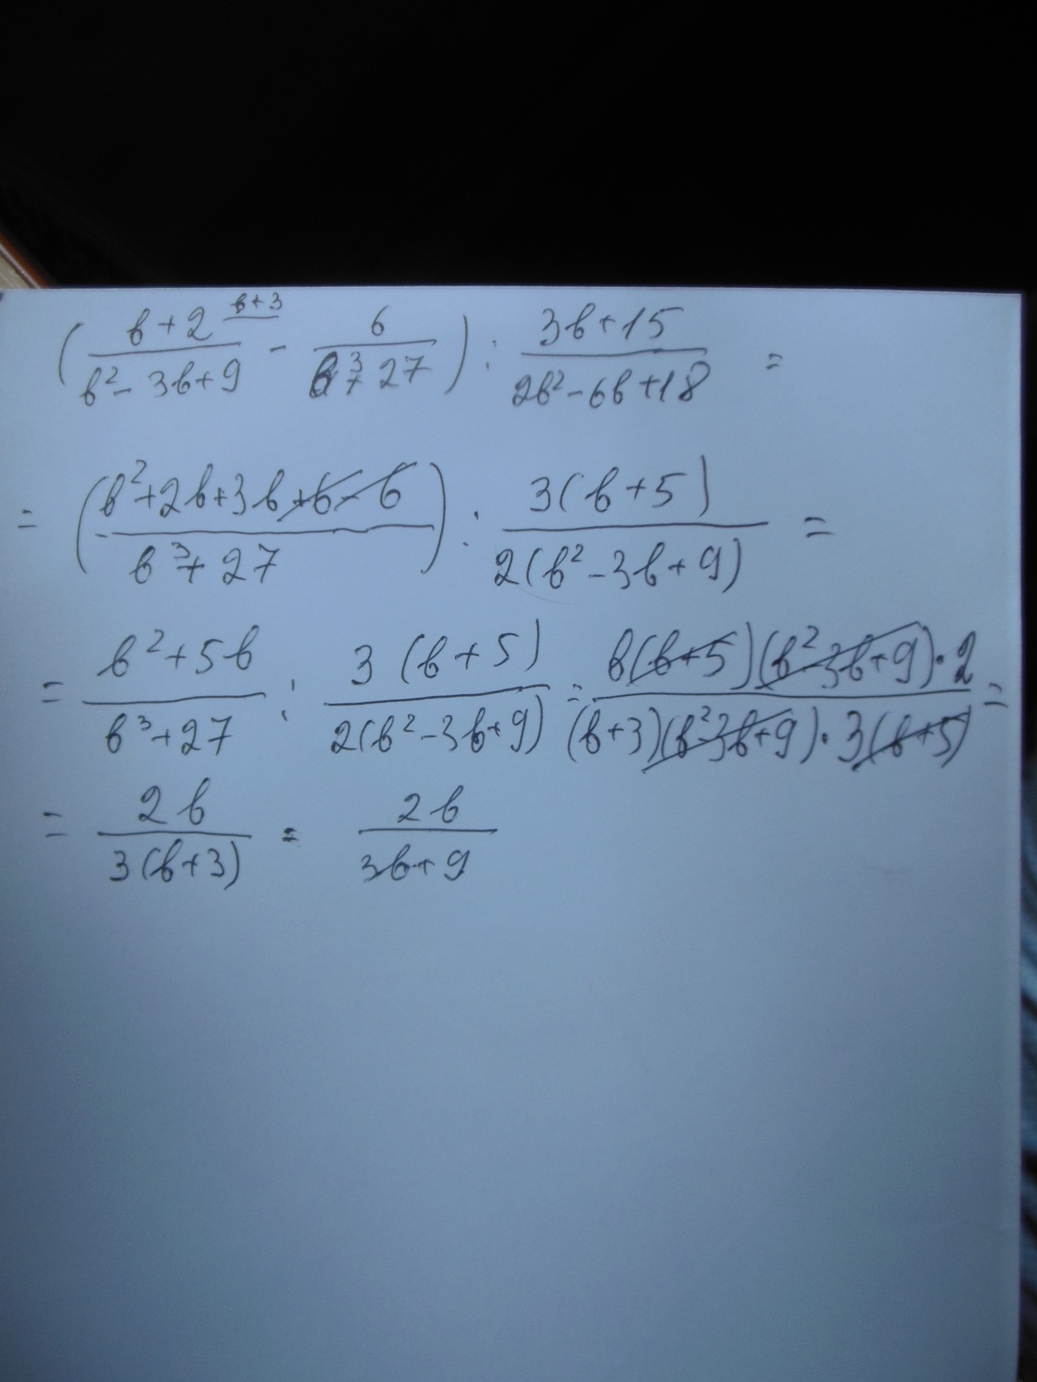 ( (b+2)/(b²-3b+9) ^(b+3) - 6/(b³+27) ) : (3b+15)/(2b²-6b+18) =
= ( (b²+2b+3b+6-6)/(b³+27) ) : 3(b+5)/(2(b²-3b+9)) =
= (b²+5b)/(b³+27) : 3(b+5)/(2(b²-3b+9)) = (b(b+5)(b²-3b+9)·2)/((b+3)(b²-3b+9)·3(b+5)) =
= 2b/(3(b+3)) = 2b/(3b+9)